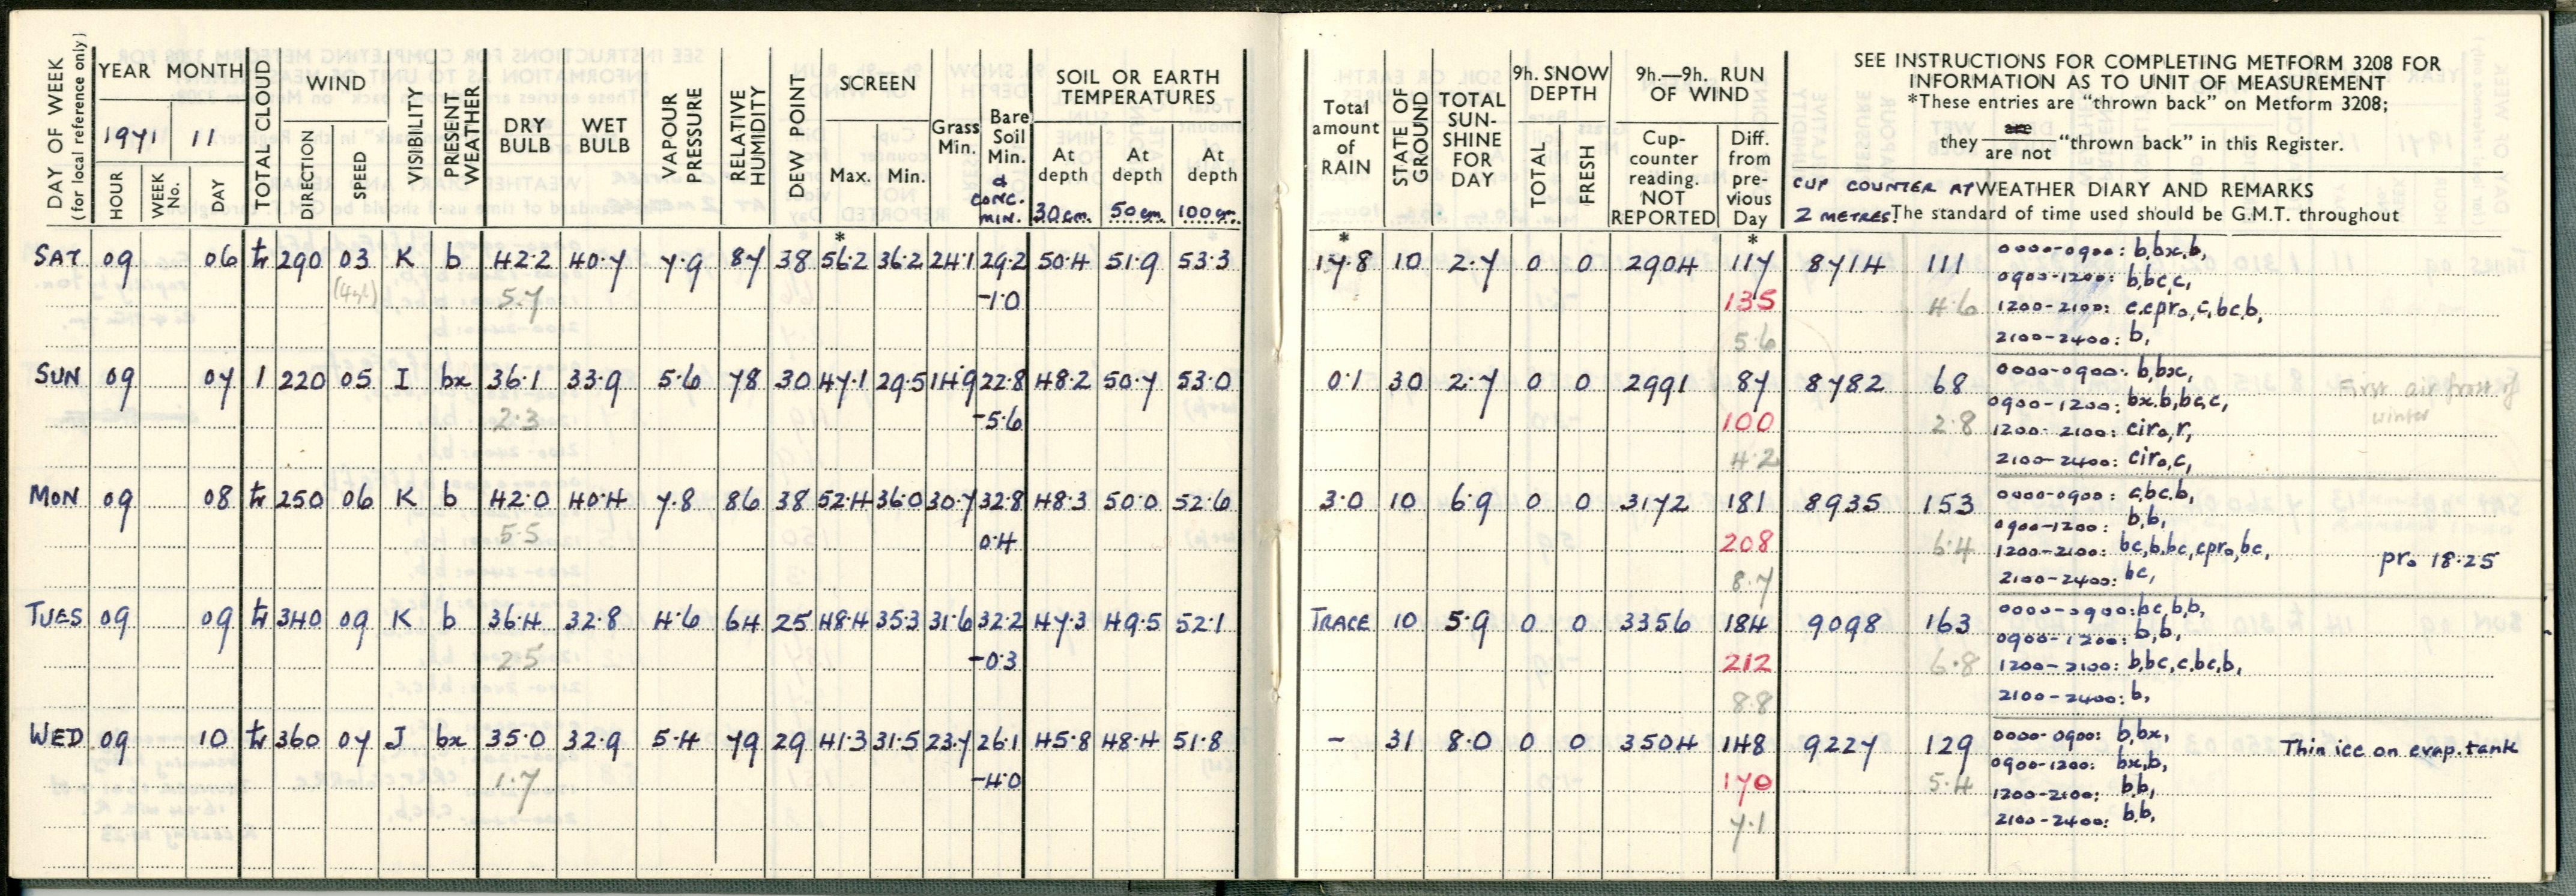 DAY OF WEEK
(for local reference only)
YEAR MONTH
1971 11
HOUR
WEEK No.
DAY
TOTAL CLOUD
WIND
DIRECTION
SPEED
VISIBILITY
PRESENT WEATHER
DRY BULB
WET BULB
VAPOUR PRESSURE
RELATIVE HUMIDITY
DEW POINT
SCREEN
Max. Min.
Grass Min.
Bare Soil Min.
& CONC. MIN.
SOIL OR EARTH TEMPERATURES
At depth 30 cm.
At depth 50 cm.
At depth 100 cm.
Total amount of RAIN
STATE OF GROUND
TOTAL SUN-SHINE FOR DAY
9h. SNOW DEPTH
TOTAL
FRESH
9h.—9h. RUN OF WIND
Cup-counter reading. NOT REPORTED
Diff. from pre-vious Day
SEE INSTRUCTIONS FOR COMPLETING METFORM 3208 FOR
INFORMATION AS TO UNIT OF MEASUREMENT
*These entries are "thrown back" on Metform 3208;
they are / are not "thrown back" in this Register.
CUP COUNTER AT WEATHER DIARY AND REMARKS
2 METRES. The standard of time used should be G.M.T. throughout
* * *
SAT 09 06 tr 290 03 K b 42.2 40.7 7.9 87 38 56.2 36.2 24.1 29.2 50.4 51.9 53.3 17.8 10 2.7 0 0 2904 117 8714 111 0000-0900: b,bx,b,
0900-1200: b,bc,c,
5.7 -1.0 135 4.6 1200-2100: c.cpr₀,c,bc,b,
5.6 2100-2400: b,
SUN 09 07 1 220 05 I bx 36.1 33.9 5.6 78 30 47.1 29.5 14.9 22.8 48.2 50.7 53.0 0.1 30 2.7 0 0 2991 87 8782 68 0000-0900: b,bx, First air frost of
0900-1200: bx.b,bc,c, winter
2.3 -5.6 100 2.8 1200-2100: cir₀,r,
4.2 2100-2400: cir₀,c,
MON 09 08 tr 250 06 K b 42.0 40.4 7.8 86 38 52.4 36.0 30.7 32.8 48.3 50.0 52.6 3.0 10 6.9 0 0 3172 181 8935 153 0000-0900: c,bc,b,
0900-1200: b,b,
5.5 0.4 208 6.4 1200-2100: bc,b,bc,cpr₀,bc, pr₀ 18.25
8.7 2100-2400: bc,
TUES 09 09 tr 340 09 K b 36.4 32.8 4.6 64 25 48.4 35.3 31.6 32.2 47.3 49.5 52.1 TRACE 10 5.9 0 0 3356 184 9098 163 0000-0900: bc,b,b,
0900-1200: b,b,
2.5 -0.3 212 6.8 1200-2100: b,bc,c,bc,b,
8.8 2100-2400: b,
WED 09 10 tr 360 07 J bx 35.0 32.9 5.4 79 29 41.3 31.5 23.7 26.1 45.8 48.4 51.8 - 31 8.0 0 0 3504 148 9227 129 0000-0900: b,bx, Thin ice on evap. tank
0900-1200: bx,b,
1.7 -4.0 170 5.4 1200-2100: b,b,
7.1 2100-2400: b,b,